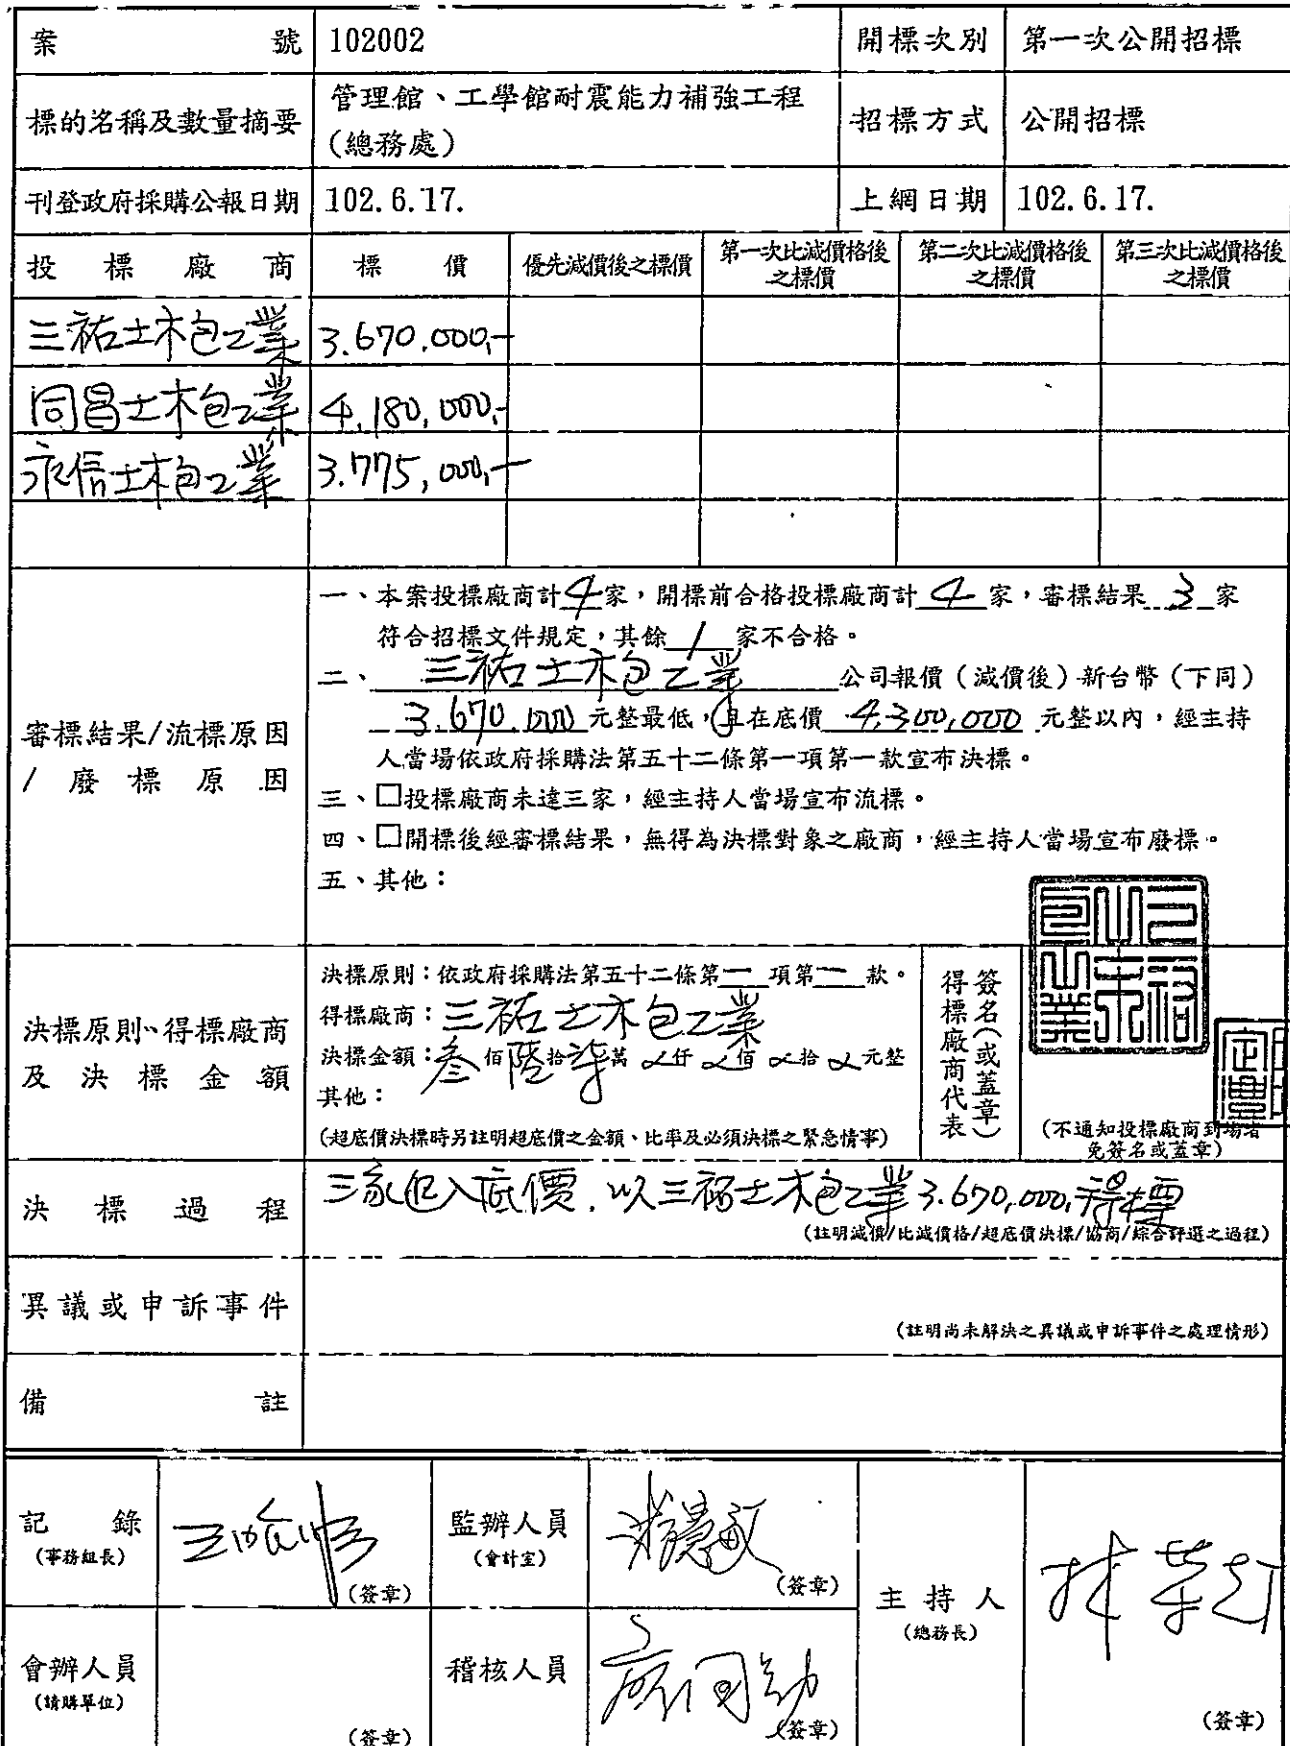 案號 102002 開標次別 第一次公開招標
標的名稱及數量摘要 管理館、工學館耐震能力補強工程
(總務處)
招標方式 公開招標
刊登政府採購公報日期 102.6.17. 上網日期 102.6.17.
投標廠商 標價 優先減價後之標價 第一次比減價格後之標價 第二次比減價格後之標價 第三次比減價格後之標價
三祐土木包工業 3.670.000,-
同昌土木包工業 4,180,000,-
永信土木包工業 3.775,000,-
審標結果/流標原因/廢標原因
一、本案投標廠商計4家，開標前合格投標廠商計4家，審標結果3家
符合招標文件規定，其餘1家不合格。
二、三祐土木包工業公司報價（減價後）新台幣（下同）
3.670.000元整最低，且在底價4,300,000元整以內，經主持
人當場依政府採購法第五十二條第一項第一款宣布決標。
三、□投標廠商未達三家，經主持人當場宣布流標。
四、□開標後經審標結果，無得為決標對象之廠商，經主持人當場宣布廢標。
五、其他：
決標原則、得標廠商及決標金額
決標原則：依政府採購法第五十二條第一項第一款。
得標廠商：三祐土木包工業
決標金額：叁佰陸拾柒萬 仟 佰 拾 元整
其他：
(超底價決標時另註明超底價之金額、比率及必須決標之緊急情事)
得標廠商代表簽名(或蓋章)
(不通知投標廠商到場者
免簽名或蓋章)
決標過程 三家 入底價. 以三祐土木包工業3.670,000,得標
(註明減價/比減價格/超底價決標/協商/綜合評選之過程)
異議或申訴事件
(註明尚未解決之異議或申訴事件之處理情形)
備註
記錄
(事務組長)
(簽章)
監辦人員
(會計室)
(簽章)
主持人
(總務長)
(簽章)
會辦人員
(請購單位)
(簽章)
稽核人員
(簽章)